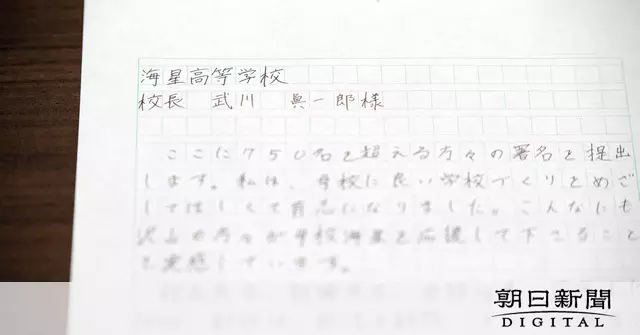 海星高等学校
校長 武川 眞一郎様
ここに750名を超える方々の署名を提出
します。私は、母校に良い学校づくりをめざ
してほしくて有志になりました。こんなにも
沢山の方々が母校海星を応援して下さること
を実感しています。
朝日新聞
DIGITAL